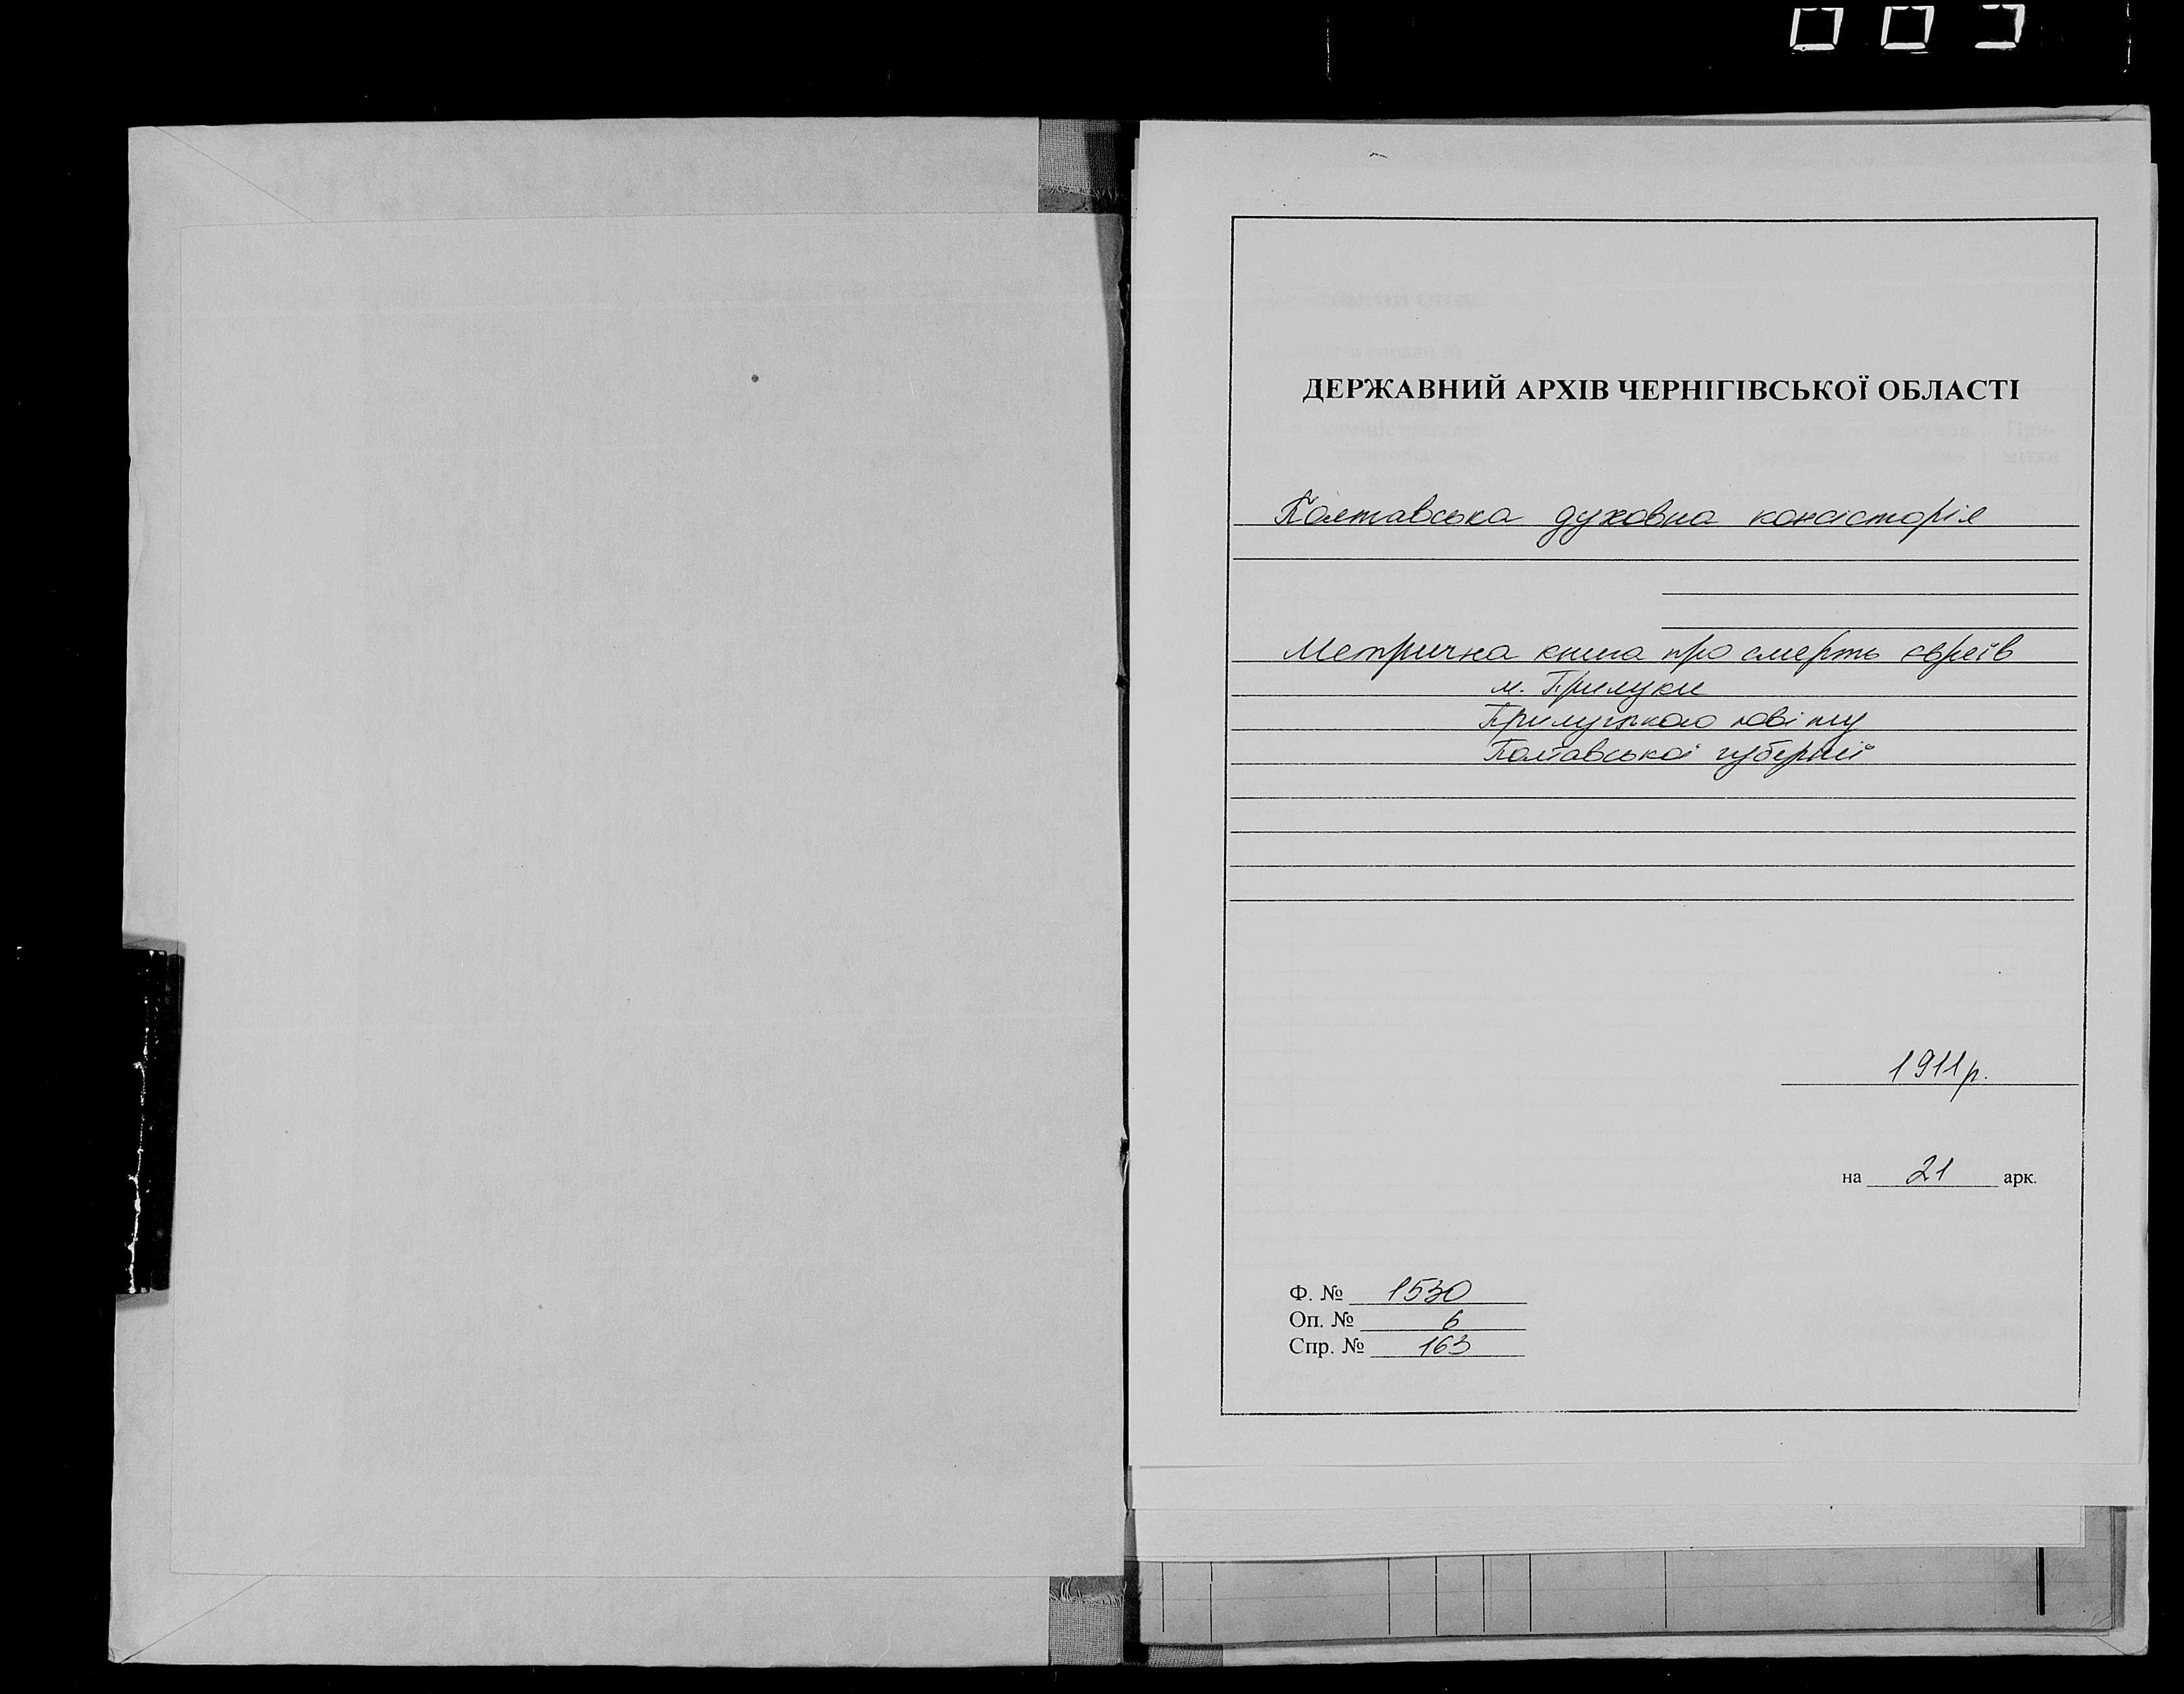 ДЕРЖАВНИЙ АРХІВ ЧЕРНІГІВСЬКОЇ ОБЛАСТІ
Полтавська духовна консисторія
Метрична книга про смерть євреїв
м. Прилуки
Прилуцького повіту
Полтавської губернії
1911р.
на 21 арк.
Ф. № 1530
Оп. № 6
Спр. № 163